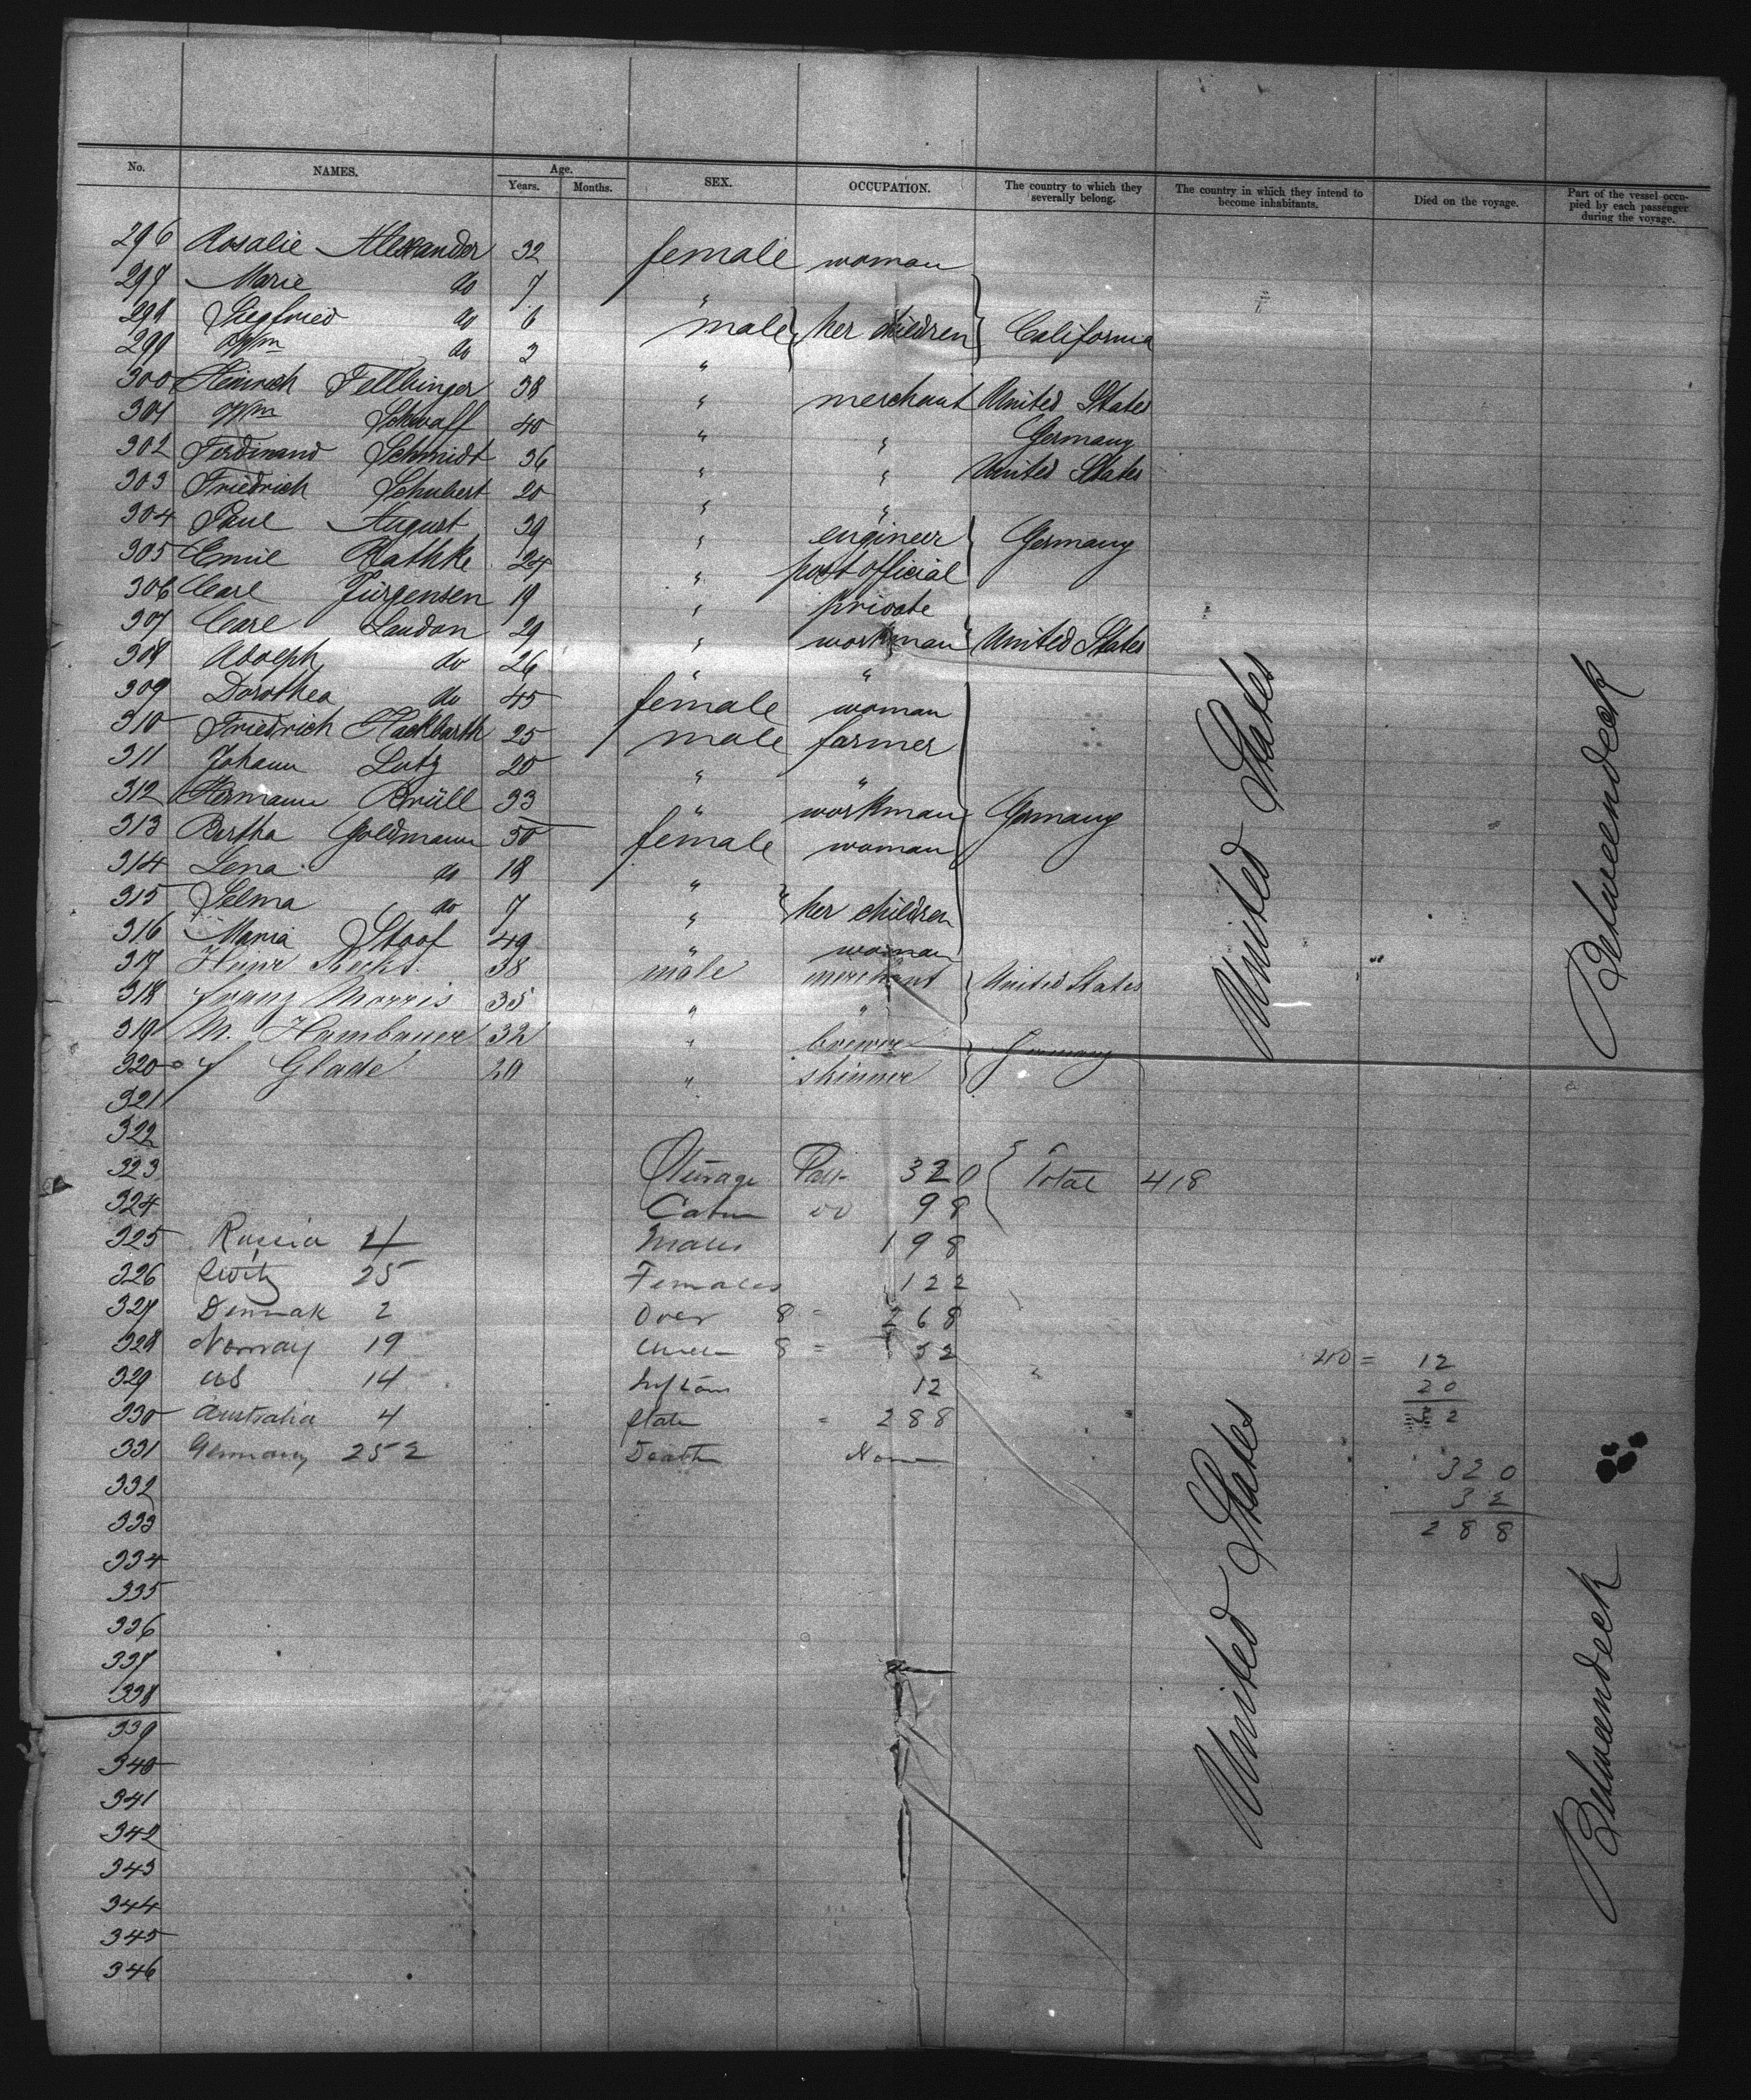 No. NAMES. Age. Years. Months. SEX. OCCUPATION. The country to which they severally belong. The country in which they intend to become inhabitants. Died on the voyage. Part of the vessel occupied by each passenger during the voyage.
296 Rosalie Alexander 32 female woman
297 Marie do 7 "
298 Siegfried do 6 male her children California
299 Wm do 2 "
300 Heinrich Fellbinger 38 " merchant United States
301 Wm Schwaff 40 " " Germany
302 Ferdinand Schmidt 36 " " United States
303 Friedrich Schubert 20 " "
304 Paul August 39 " engineer Germany
305 Emil Rathke 24 " post official
306 Carl Jürgensen 19 " private
307 Carl Landon 29 " workman United States
308 Adolph do 26 " "
309 Dorothea do 45 female woman
310 Friedrich Hackbarth 25 male farmer
311 Johann Lutz 20 " "
312 Hermann Brüll 33 " workman Germany
313 Bertha Goldmann 50 female woman
314 Lena do 18 "
315 Selma do 7 " her children
316 Maria Stoof 49 " woman
317 38 male merchant United States
318 Franz Morris 35 " "
319 M. Hambauer 32 " brewer Germany
320 F Glade 20 " skinner
United States
Betweendeck
321
322
323 Steerage Pass 320 Total 418
324 Cabin do 98
325 Russia 4 Males 198
326 Switz 25 Females 122
327 Denmak 2 Over 8 = 268
328 Norway 19 Under 8 = 52 = 12
329 US 14 12 20
330 Australia 4 State = 288 32
331 Germany 252 Death None 320
332 32
333 288
334
335
336
337
338
339
340
341
342
343
344
345
346
United States
Betweendeck